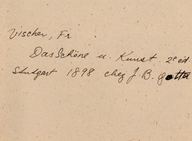 Vischer, Fr
Das Schöne u. Kunst 2e éd
Stuttgart 1898 chez J B. Gotta